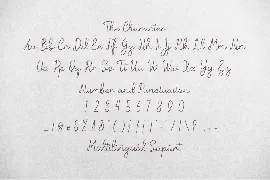 The Character
Aa Bb Cc Dd Ee Ff Gg Hh Ii Jj Kk Ll Mm Nn
Oo Pp Qq Rr Ss Tt Uu Vv Ww Xx Yy Zz
Number and Punctuation
1 2 3 4 5 6 7 8 9 0
Multilingual Suport